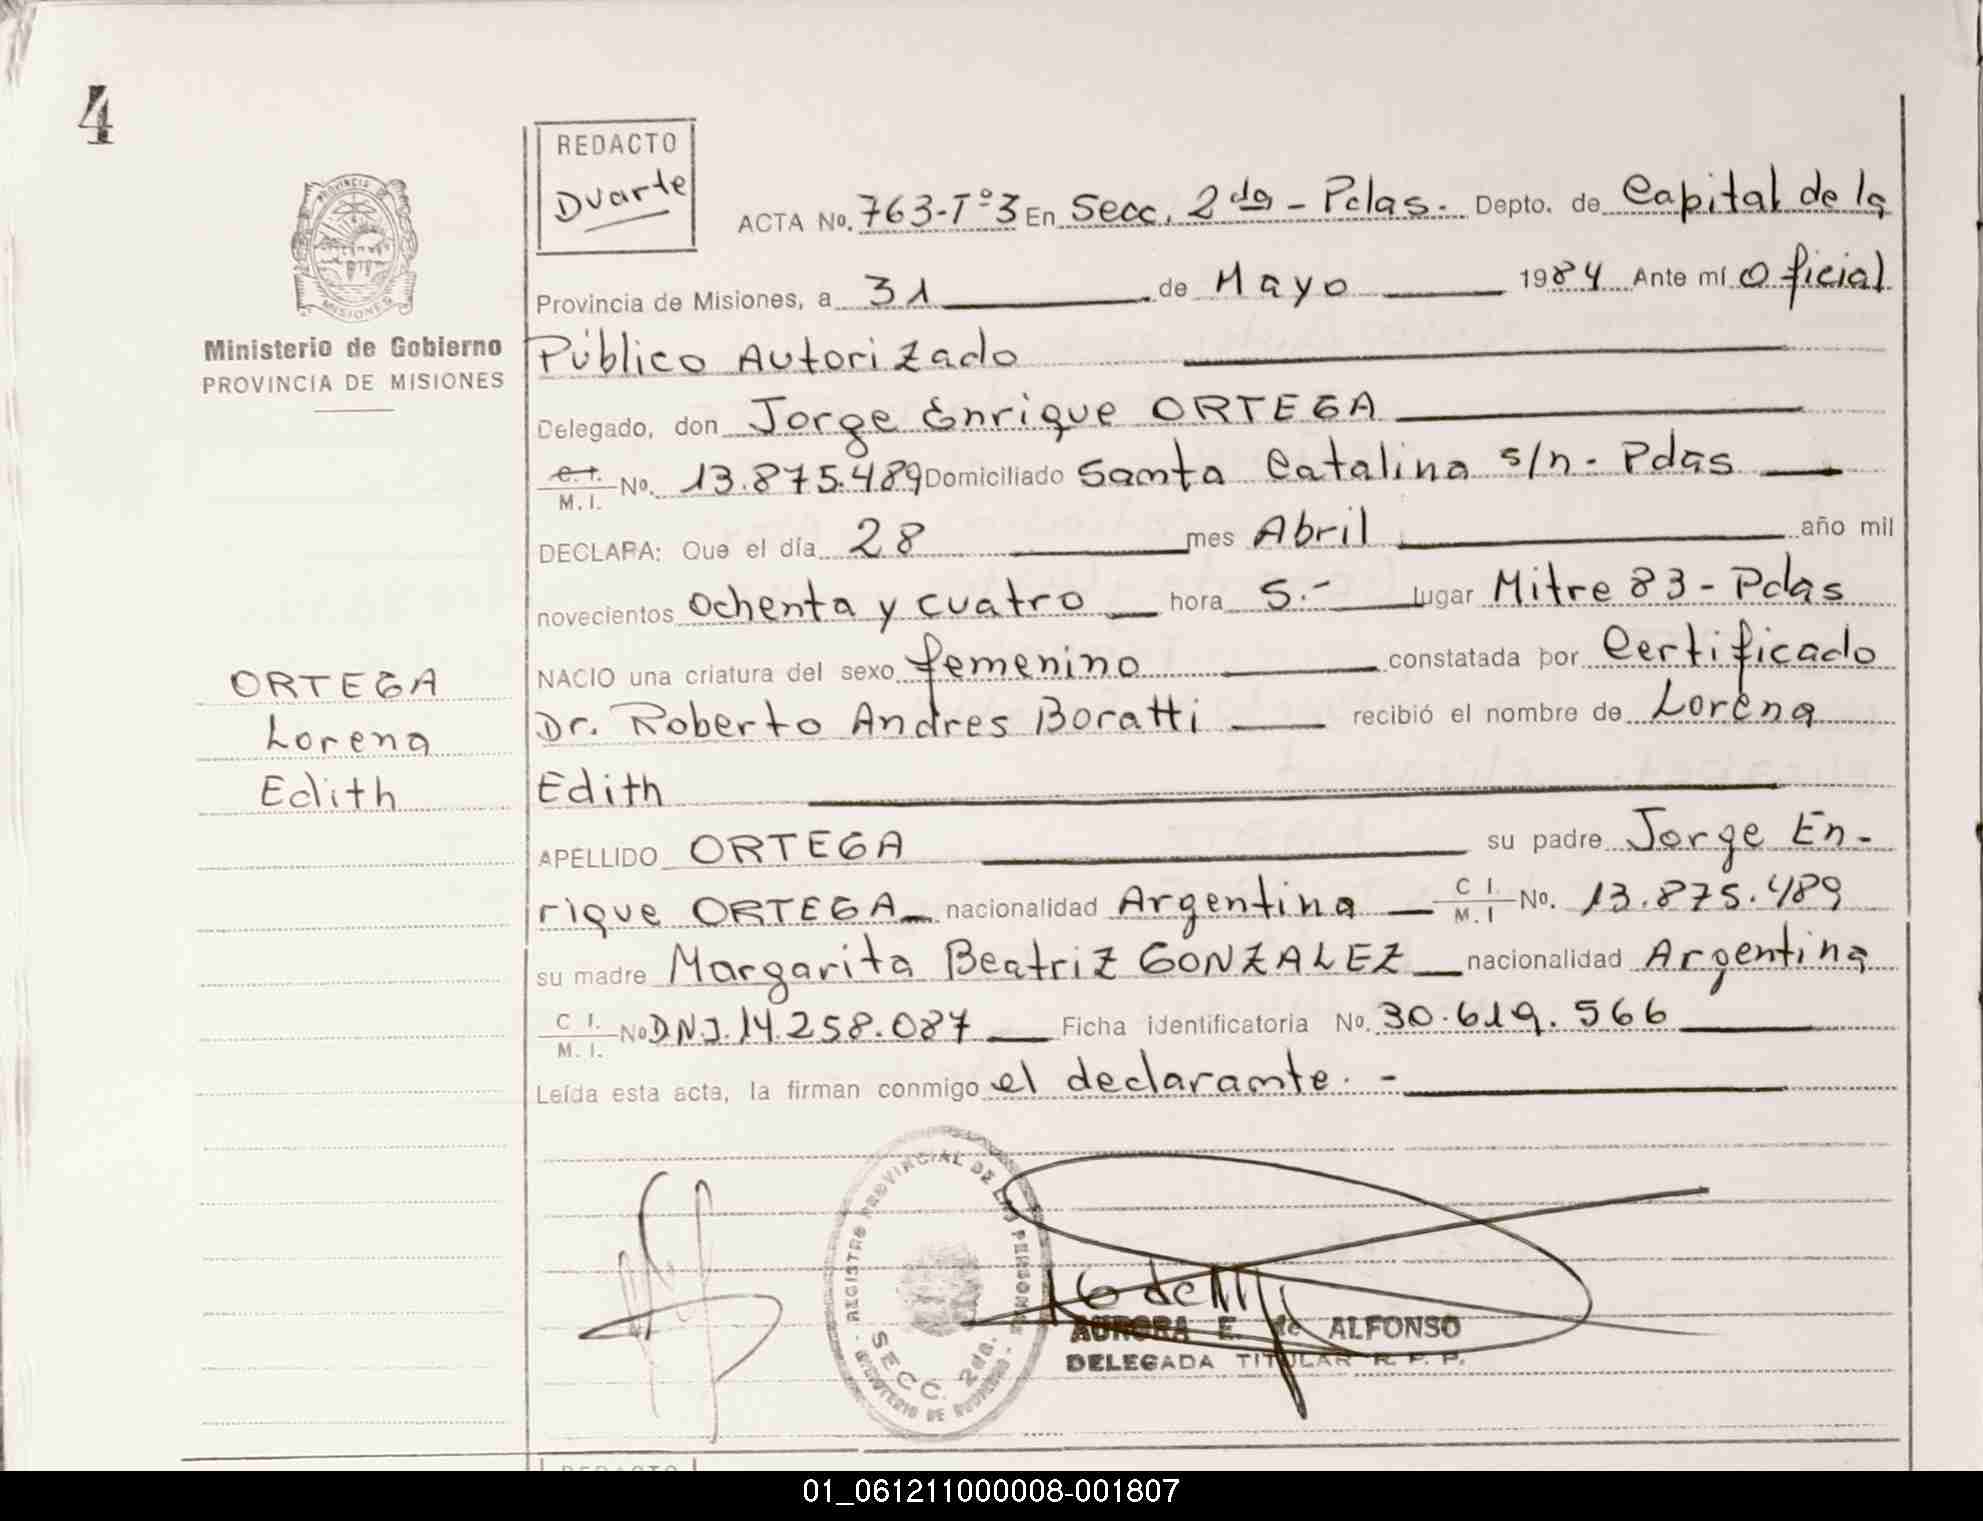 4
REDACTO
Duarte
ACTA No. 763-Tº3 En Secc. 2da - Pdas. Depto. de Capital de la
Provincia de Misiones, a 31 de Mayo 1984 Ante mí Oficial
Público Autorizado
Delegado, don Jorge Enrique ORTEGA
C.I.
M.I. No. 13.875.489 Domiciliado Santa Catalina s/n - Pdas
DECLARA: Que el día 28 mes Abril año mil
novecientos ochenta y cuatro hora 5.- lugar Mitre 83 - Pdas
NACIO una criatura del sexo femenino constatada por Certificado
Dr. Roberto Andres Boratti recibió el nombre de Lorena
Edith
APELLIDO ORTEGA su padre Jorge En-
rique ORTEGA nacionalidad Argentina C I.
M. I No. 13.875.489
su madre Margarita Beatriz GONZALEZ nacionalidad Argentina
C I.
M. I. No D.N.I. 14.258.087 Ficha identificatoria No. 30.619.566
Leída esta acta, la firman conmigo el declarante. -
PROVINCIA
MISIONES
Ministerio de Gobierno
PROVINCIA DE MISIONES
ORTEGA
Lorena
Edith
REGISTRO PROVINCIAL DE LAS PERSONAS
SECC. 2da.
MINISTERIO DE GOBIERNO
AURORA E. de ALFONSO
DELEGADA TITULAR R. P. P.
REDACTO
01_061211000008-001807